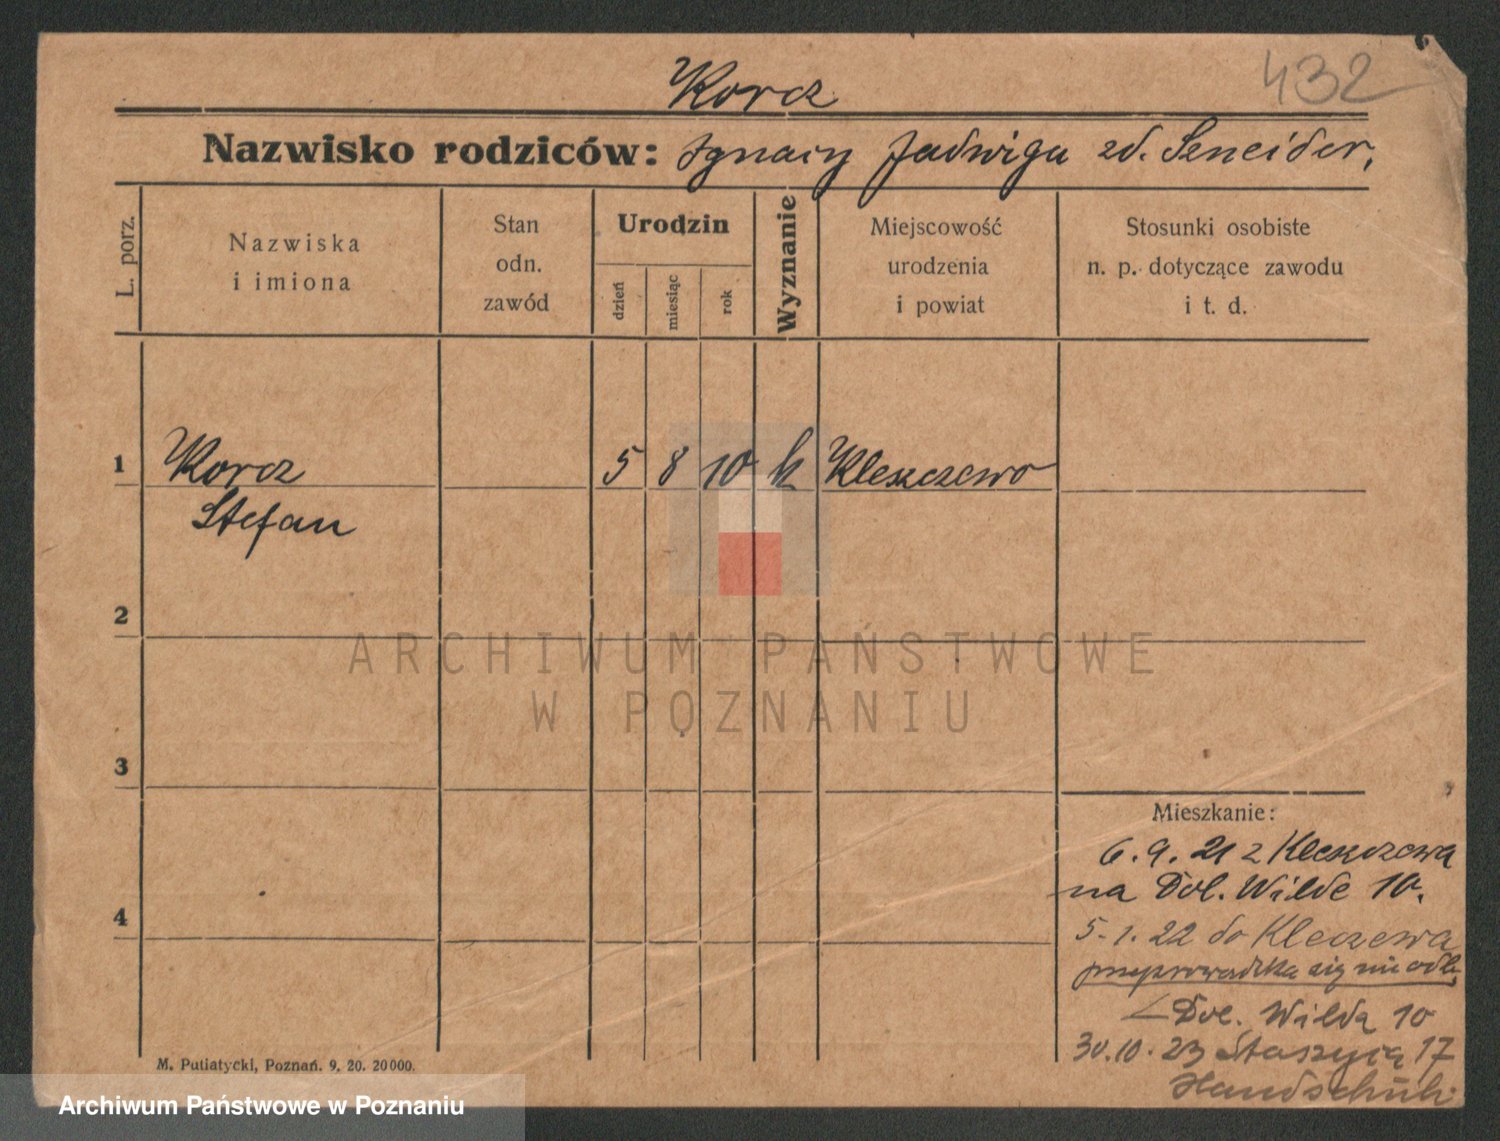 Korcz
432
Nazwisko rodziców: Ignacy Jadwiga zd. Szneider.
L. porz.
Nazwiska
i imiona
Stan
odn.
zawód
Urodzin
dzień
miesiąc
rok
Wyznanie
Miejscowość
urodzenia
i powiat
Stosunki osobiste
n. p. dotyczące zawodu
i t. d.
1 Korcz 5 8 10 k Kleszczewo
Stefan
2
3
4
ARCHIWUM PAŃSTWOWE
W POZNANIU
Mieszkanie:
6.9.21 z Kleszczewa
na Dol. Wilde 10.
5.1.22 do Kleczewa
przeprowadzka się nie odb.
Dol. Wilda 10
30.10.23 Staszyca 17
Handschuh
M. Putiatycki, Poznań. 9. 20. 20000.
Archiwum Państwowe w Poznaniu